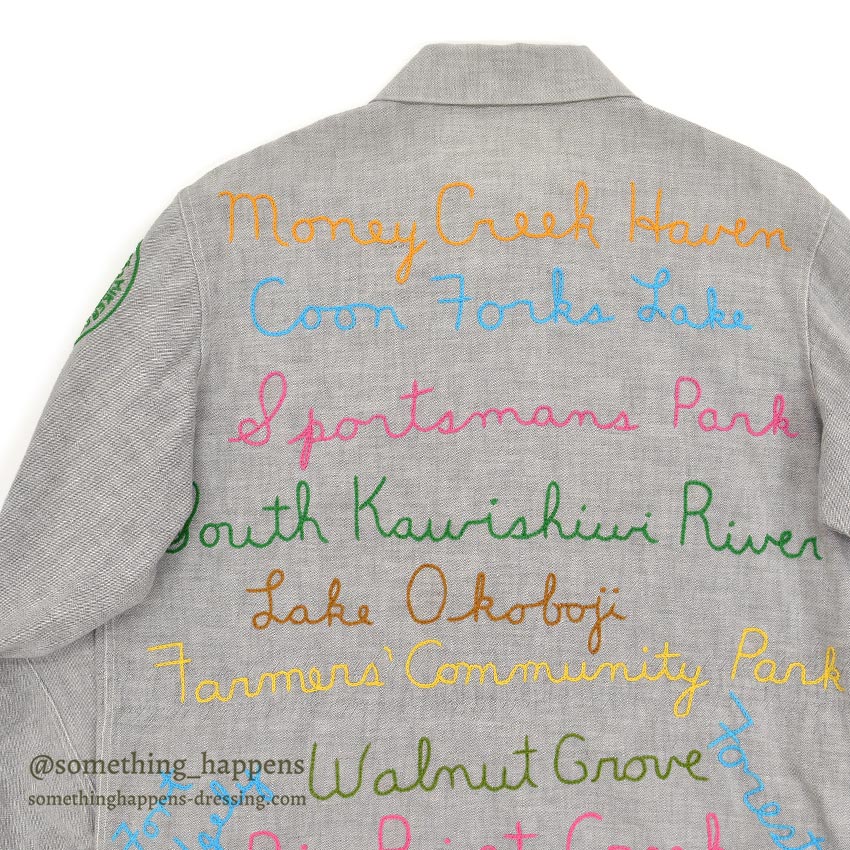 Money Creek Haven
Coon Forks Lake
Sportsmans Park
South Kawishiwi River
Lake Okoboji
Farmers' Community Park
Walnut Grove
Forest
Fort
@something_happens
somethinghappens-dressing.com